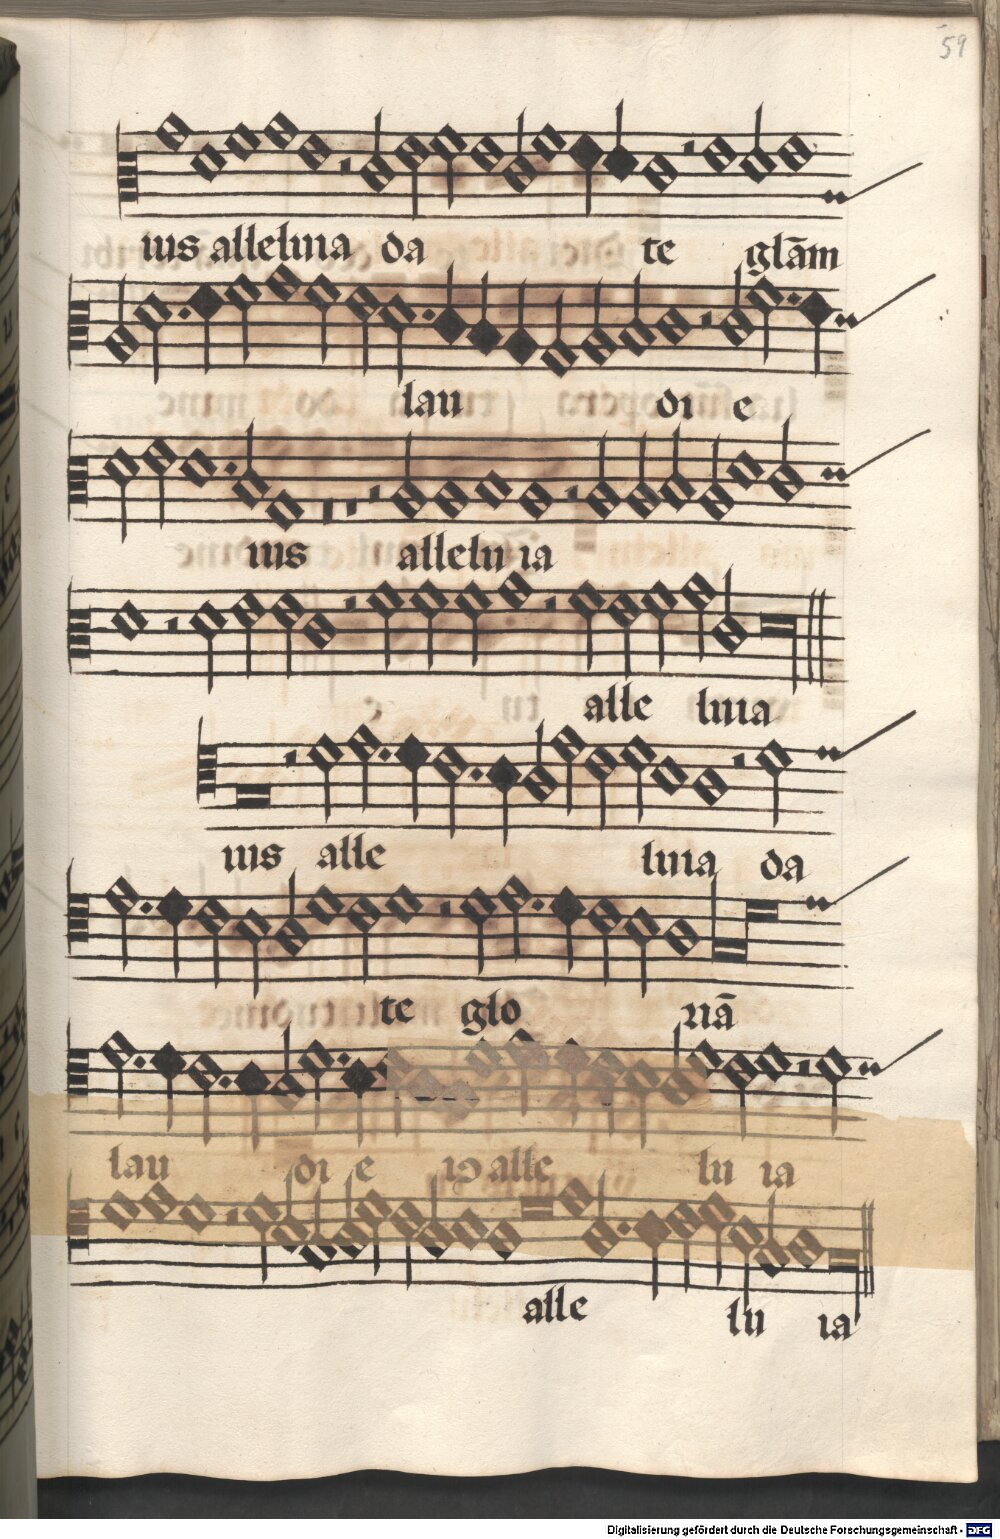 59
ius alleluia da te glām
lau di e
ius alleluia
alle luia
ius alle luia da
te glo riā
lau di e i9 alle lu ia
alle lu ia
Digitalisierung gefördert durch die Deutsche Forschungsgemeinschaft - DFG